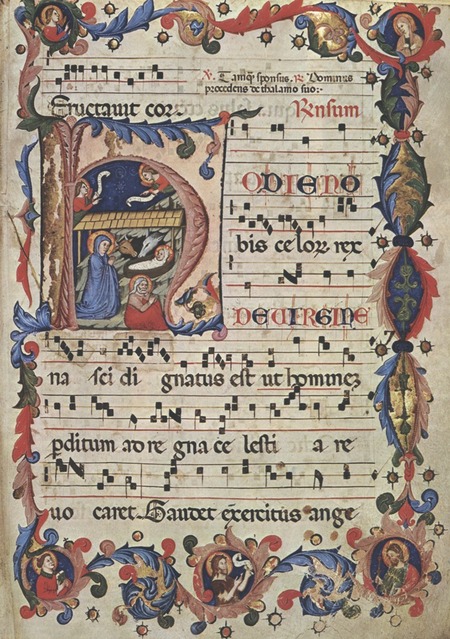 ℣. Tamq̃ sponsus. ℟. Dominus
procedens de thalamo suo:
Eructauit cor. Rnsum
HODIE NO
bis celoꝝ rex
DE UIRGINE
na sci di gnatus est ut hominez
ꝑditum ad re gna ce lesti a re
uo caret. Gaudet exercitus ange